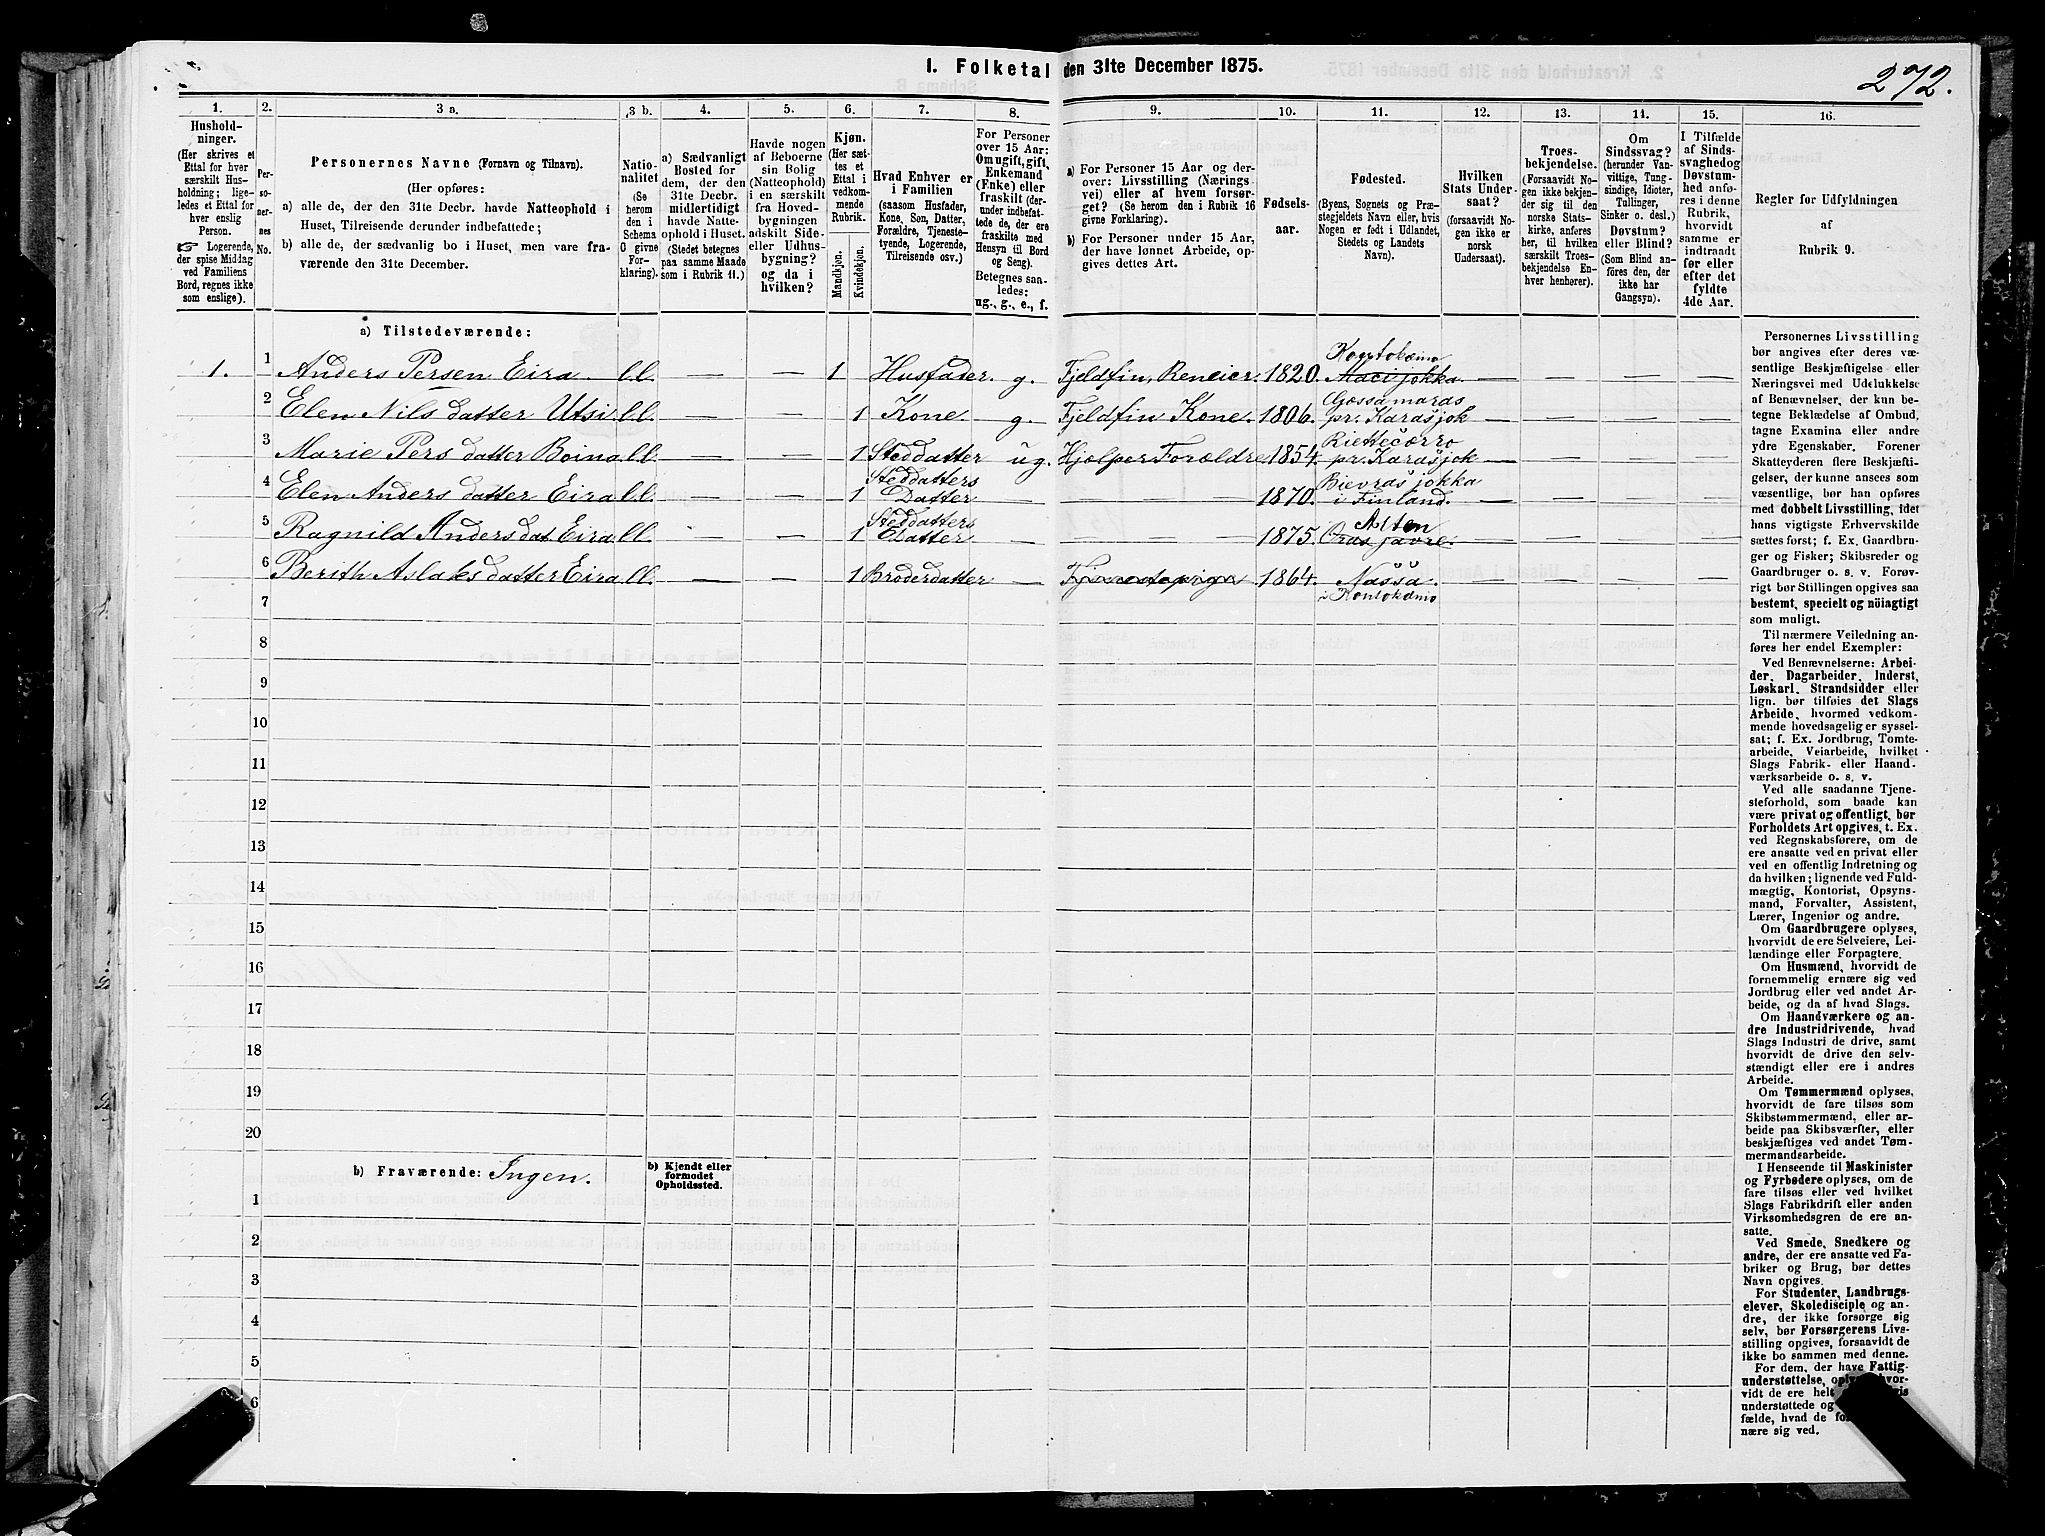 1. Folketal den 31te December 1875.
272.
1. 2. 3 a. 3 b. 4. 5. 6. 7. 8. 9. 10. 11. 12. 13. 14. 15. 16.
Hushold-
ninger.
(Her skrives et
Ettal for hver
særskilt Hus-
holdning; lige-
ledes et Ettal for
hver enslig
Person.
☞ Logerende,
der spise Middag
ved Familiens
Bord, regnes ikke
som enslige).
Per-
so-
ner-
nes
No.
Personernes Navne (Fornavn og Tilnavn).
(Her opføres:
a) alle de, der den 31te Decbr. havde Natteophold i
Huset, Tilreisende derunder indbefattede;
b) alle de, der sædvanlig bo i Huset, men vare fra-
værende den 31te December.
Natio-
nalitet
(Se
herom
den i
Schema
C givne
For-
klaring).
a) Sædvanligt
Bosted for
dem, der den
31te Decbr.
midlertidigt
havde Natte-
ophold i Huset.
(Stedet betegnes
paa samme Maade
som i Rubrik 11.)
Havde nogen
af Beboerne
sin Bolig
(Natteophold)
i en særskilt
fra Hoved-
bygningen
adskilt Side-
eller Udhus-
bygning?
og da i
hvilken?
Kjøn.
(Her sæt-
tes et
Ettal i
vedkom-
mende
Rubrik.
Mandkjøn.
Kvindekjøn.
Hvad Enhver er
i Familien
(saasom Husfader,
Kone, Søn, Datter,
Forældre, Tjeneste-
tyende, Logerende,
Tilreisende osv.)
For Personer
over 15 Aar:
Om ugift, gift,
Enkemand
(Enke) eller
fraskilt (der-
under indbefat-
tede de, der ere
fraskilte med
Hensyn til Bord
og Seng).
Betegnes saa-
ledes:
ug., g., e., f.
a) For Personer 15 Aar og der-
over: Livsstilling (Nærings-
vei) eller af hvem forsør-
get? (Se herom den i Rubrik 16
givne Forklaring).
b) For Personer under 15 Aar,
der have lønnet Arbeide, op-
gives dettes Art.
Fødsels-
aar.
Fødested.
(Byens, Sognets og Præ-
stegjeldets Navn eller, hvis
Nogen er født i Udlandet,
Stedets og Landets
Navn).
Hvilken
Stats Under-
saat?
(forsaavidt No-
gen ikke er
norsk
Undersaat).
Troes-
bekjendelse.
(Forsaavidt No-
gen ikke bekjen-
der sig til den
norske Stats-
kirke, anføres
her, til hvilken
særskilt Troes-
bekjendelse En-
hver henhører).
Om
Sindssvag?
(herunder Van-
vittige, Tung-
sindige, Idioter,
Tullinger,
Sinker o. desl.)
Døvstum?
eller Blind?
(Som Blind an-
føres den, der
ikke har
Gangsyn).
I Tilfælde
af Sinds-
svaghed og
Døvstum-
hed anfø-
res i denne
Rubrik,
hvorvidt
samme er
indtraadt
før eller
efter det
fyldte
4de Aar.
Regler for Udfyldningen
af
Rubrik 9.
a) Tilstedeværende:
1. 1 Anders Persen Eira. l.l. — — 1 Husfader. g. Fjeldfin, Reneier. 1820. Koutokeino Macijokka. — — — —
2 Elen Nils datter Utsi l.l. — — 1 Kone. g. Fjeldfin Kone. 1806. pr. Karasjok — — — —
3 Marie Pers datter Boina l.l. — — 1 Steddatter ug. Hjælper Forældre 1854. pr. Karasjok — — — —
4 Elen Anders datter Eira l.l. — — 1 Steddatters Datter — — 1870. Bievrasjokka i Finland. — — — —
5 Ragnild Anders dat Eira l.l. — — 1 Steddatters Datter — — 1875. Alten — — — —
6 Berith Aslaks datter Eira l.l. — — 1 Broderdatter — Tjenestepige 1864. Nassa. i Koutokeino — — — —
7
8
9
10
11
12
13
14
15
16
17
18
19
20
b) Fraværende: Ingen.
b) Kjendt eller
formodet
Opholdssted.
1
2
3
4
5
6
Personernes Livsstilling
bør angives efter deres væ-
sentlige Beskjæftigelse eller
Næringsvei med Udelukkelse
af Benævnelser, der kun be-
tegne Beklædelse af Ombud,
tagne Examina eller andre
ydre Egenskaber. Forener
Skatteyderen flere Beskjæfti-
gelser, der kunne ansees som
væsentlige, bør han opføres
med dobbelt Livsstilling, idet
hans vigtigste Erhvervskilde
sættes først; f. Ex. Gaardbru-
ger og Fisker; Skibsreder og
Gaardbruger o. s. v. Forøv-
rigt bør Stillingen opgives saa
bestemt, specielt og nøiagtigt
som muligt.
Til nærmere Veiledning an-
føres her endel Exempler:
Ved Benævnelserne: Arbei-
der, Dagarbeider, Inderst,
Løskarl, Strandsidder eller
lign. bør tilføies det Slags
Arbeide, hvormed vedkom-
mende hovedsagelig er syssel-
sat; f. Ex. Jordbrug, Tomte-
arbeide, Veiarbeide, hvilket
Slags Fabrik- eller Haand-
værksarbeide o. s. v.
Ved alle saadanne Tjene-
steforhold, som baade kan
være privat og offentligt, bør
Forholdets Art opgives, t. Ex.
ved Regnskabsførere, om de
ere ansatte ved en privat eller
ved en offentlig Indretning og
da hvilken; lignende ved Fuld-
mægtig, Kontorist, Opsyns-
mand, Forvalter, Assistent,
Lærer, Ingeniør og andre.
Om Gaardbrugere oplyses,
hvorvidt de ere Selveiere, Lei-
lændinge eller Forpagtere.
Om Husmænd, hvorvidt de
fornemmelig ernære sig ved
Jordbrug eller ved andet Ar-
beide, og da af hvad Slags.
Om Haandværkere og an-
dre Industridrivende, hvad
Slags Industri de drive, samt
hvorvidt de drive den selv-
stændigt eller ere i andres
Arbeide.
Om Tømmermænd oplyses,
hvorvidt de fare tilsøs som
Skibstømmermænd, eller ar-
beide paa Skibsværfter, eller
beskjæftiges ved andet Tøm-
mermandsarbeide.
I Henseende til Maskinister
og Fyrbødere oplyses, om de
fare tilsøs eller ved hvilket
Slags Fabrikdrift eller anden
Virksomhedsgren de ere an-
satte.
Ved Smede, Snedkere og
andre, der ere ansatte ved Fa-
briker og Brug, bør dettes
Navn opgives.
For Studenter, Landbrugs-
elever, Skoledisciple og an-
dre, der ikke forsørge sig
selv, bør Forsørgerens Livs-
stilling opgives, forsaavidt de
ikke bo sammen med denne.
For dem, der have Fattig-
understøttelse,
vidt de ere helt
understøttede og
fælde, hvad de
nære sig ved.